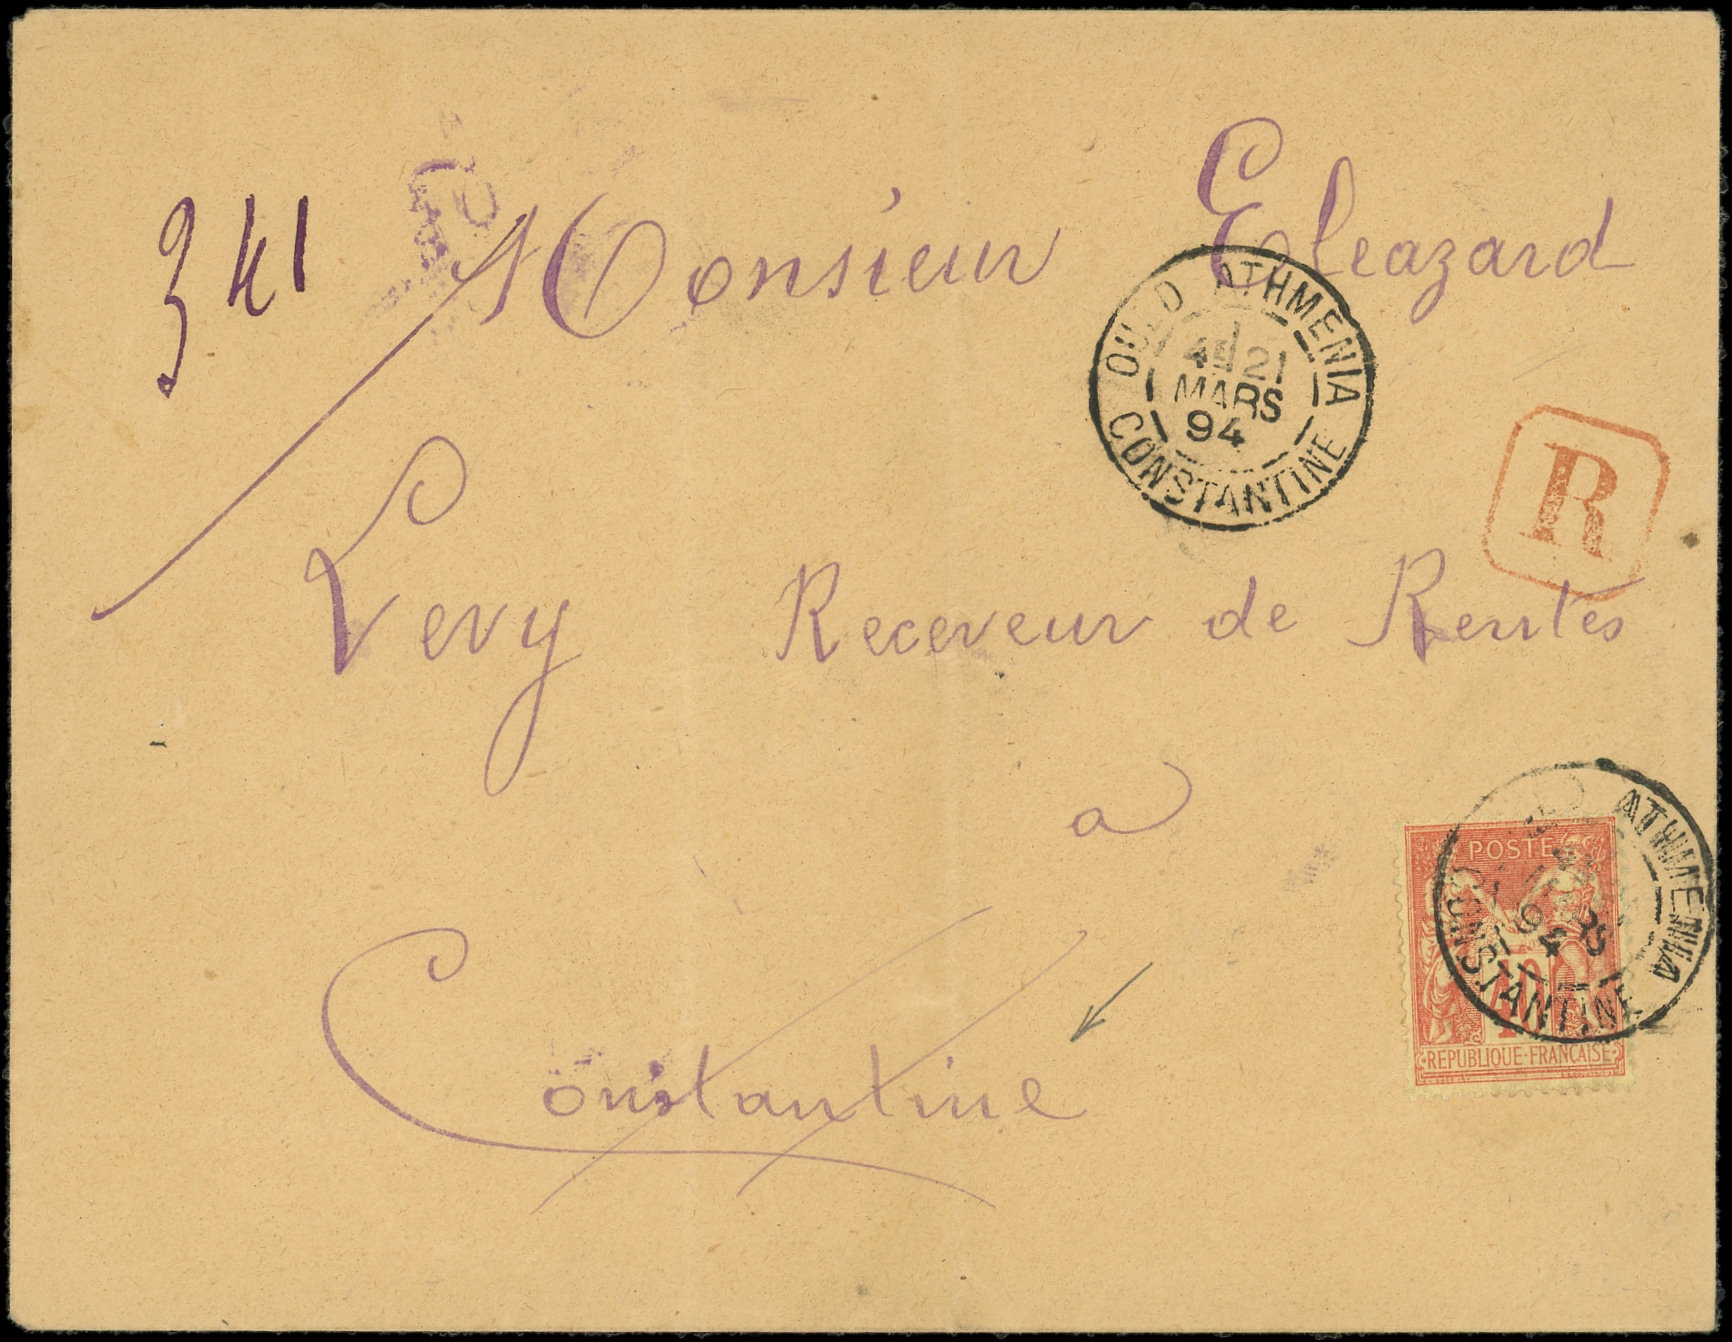 341
Monsieur Eleazard
OULD ATHMENIA
4E 21
MARS
94
CONSTANTINE
R
Levy Receveur de Rentes
a
Constantine
POSTES
40
REPUBLIQUE FRANÇAISE
ATHMENIA
MARS
94
CONSTANTINE